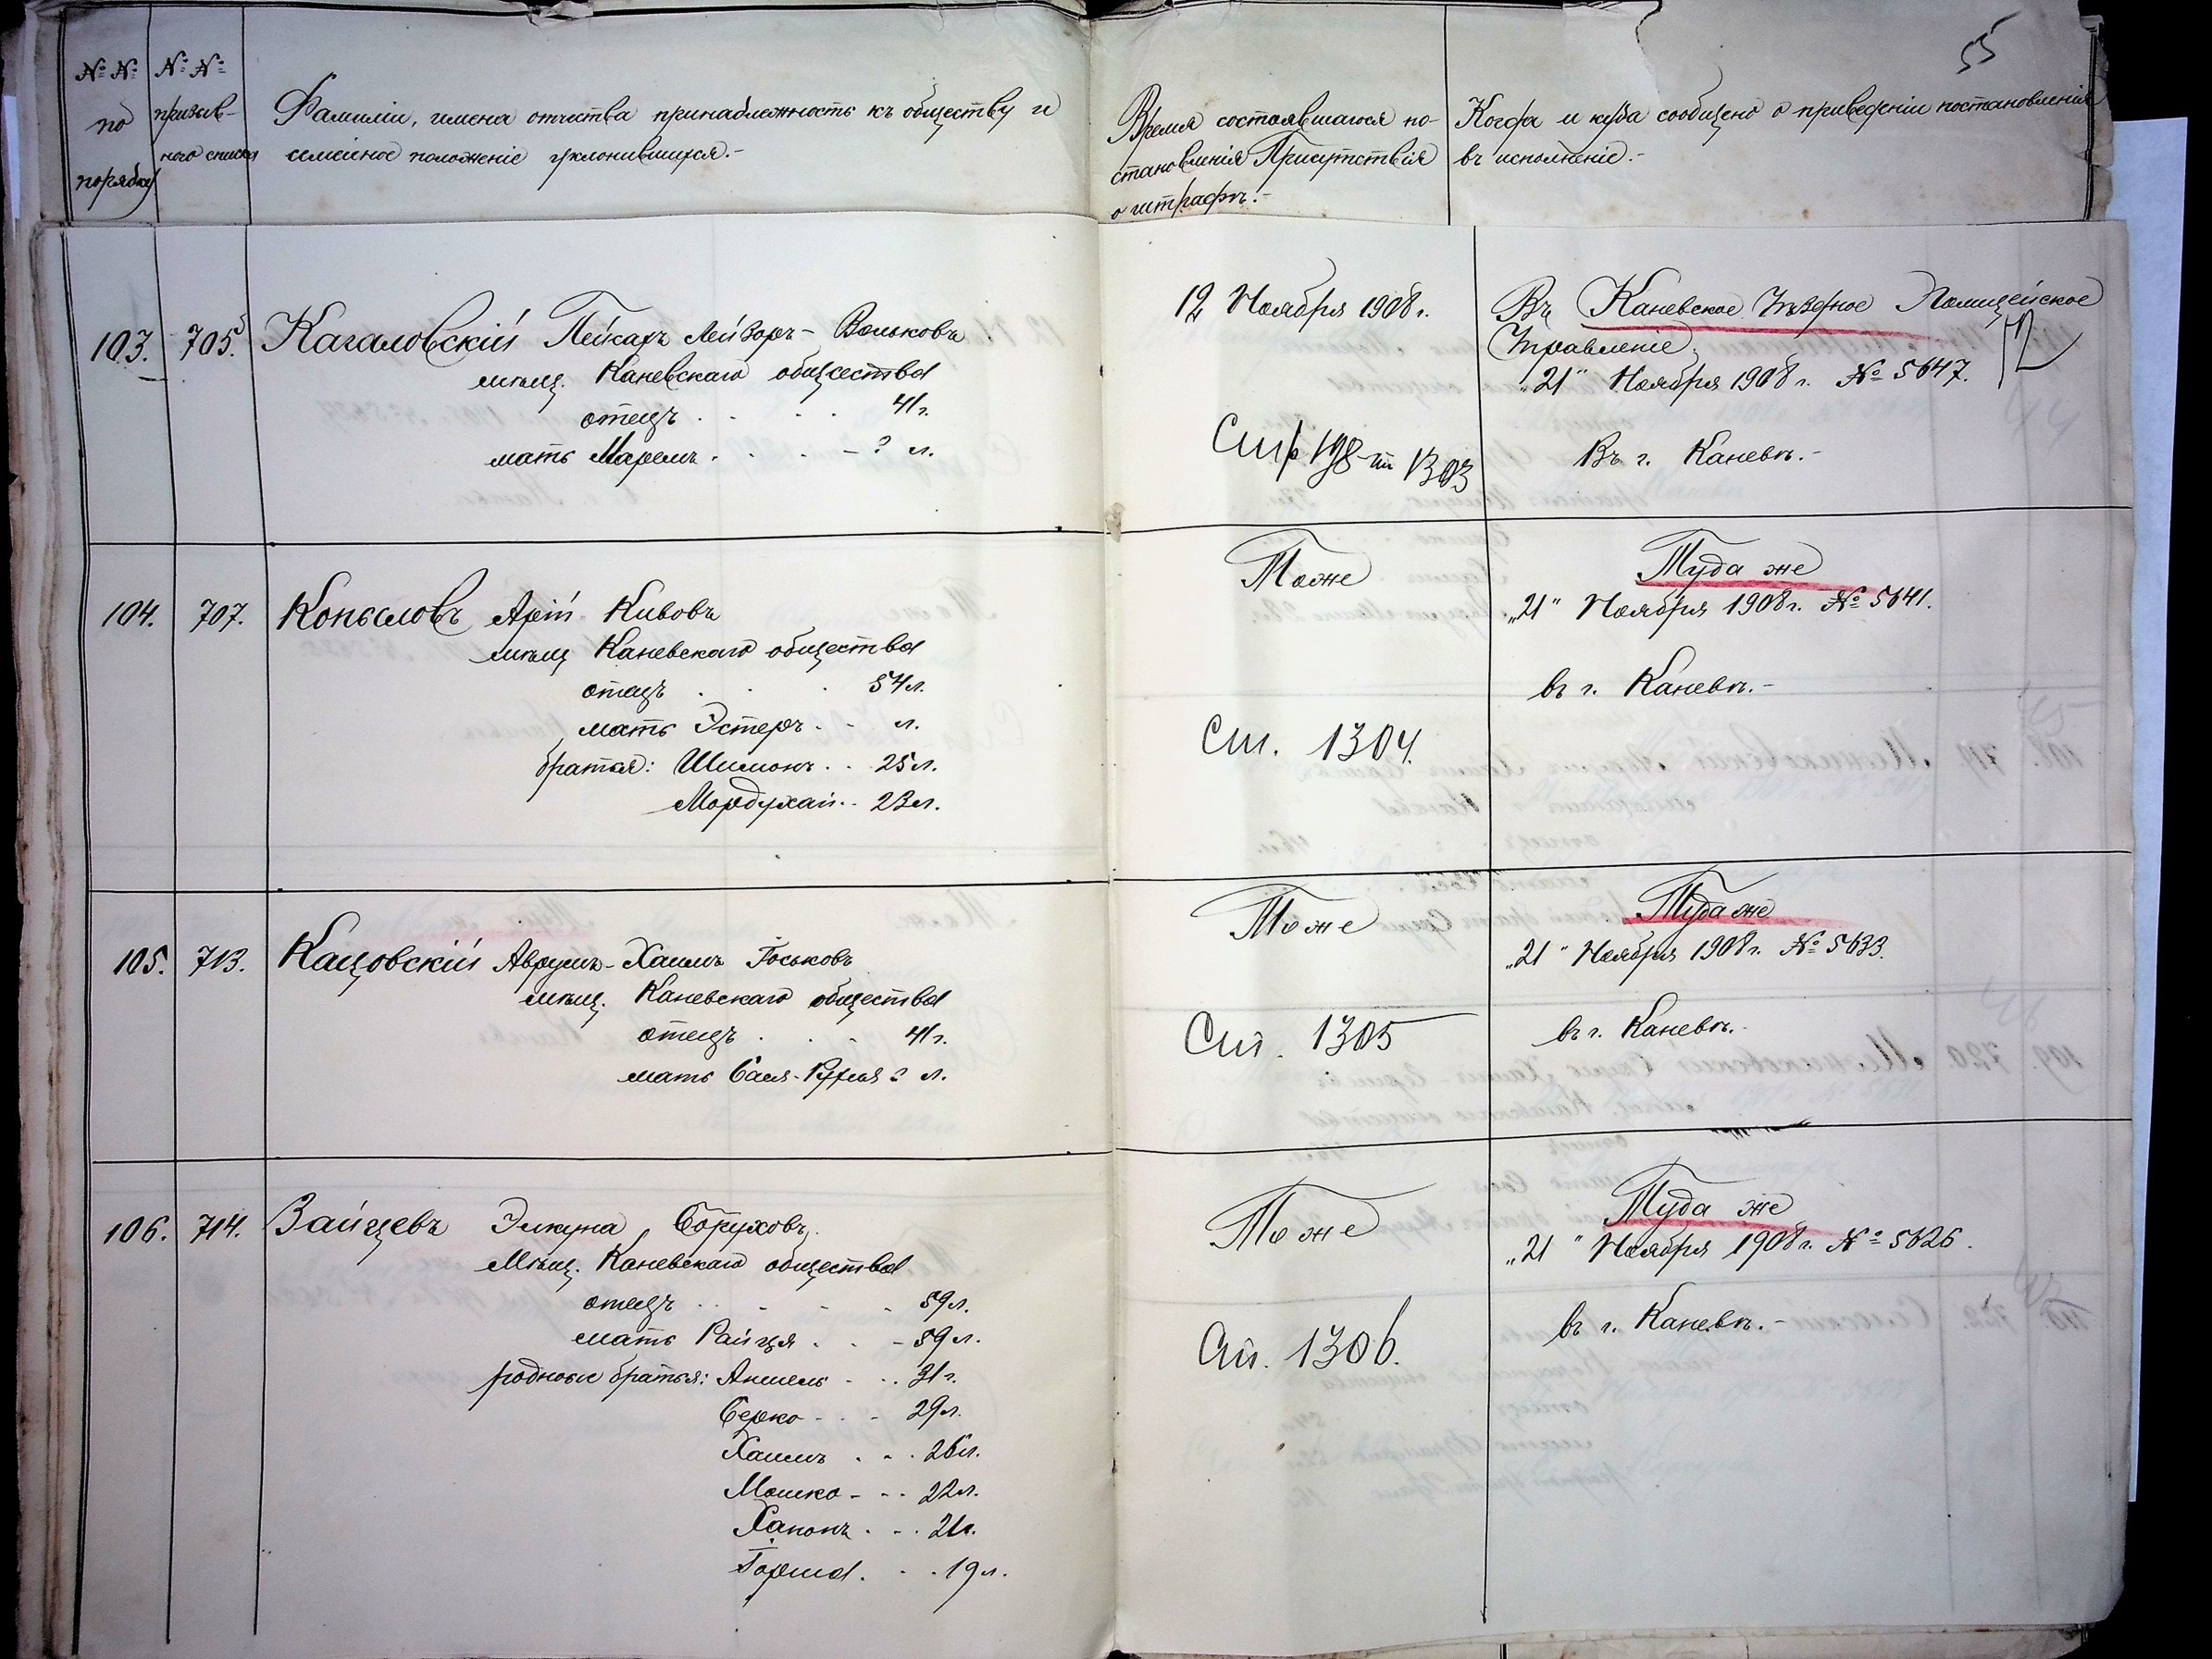 55
№ № по порядку
№ № призыв-
ного списка
Фамиліи, имена отчества принадлежность къ обществу и
семейное положеніе уклонившихся.-
Время состоявшагося по-
становленія Присутствія
о штрафѣ.-
Когда и куда сообщено о приведеніи постановленія
въ исполненіе.-
103. 705. Кагаловскій Пейсахъ Лейзоръ- Вольковъ
мѣщ. Каневскаго общества
отецъ . . . . 41 г.
мать Марьемъ . . . - ? л.
12 Ноября 1908 г.
1303
Въ Каневское Уѣздное Полицейское
Управленіе.
"21" Ноября 1908 г. № 5647.
Въ г. Каневѣ.-
104. 707. Копыловъ Арій Кивовъ
мѣщ Каневскаго общества
отецъ . . . 54 л.
мать Эстеръ . - л.
братья: Шимонъ . . 25 л.
Мордухай . . 23 л.
Тоже
Сп. 1304.
Туда же
"21" Ноября 1908 г. № 5641.
въ г. Каневѣ.-
105. 713. Кацовскій Аврумъ-Хаимъ Іоськовъ
мѣщ. Каневскаго общества
отецъ . . . 41 г.
мать Бася- ? л.
Тоже
Сп. 1305
Туда же
"21" Ноября 1908 г. № 5633.
въ г. Каневѣ.-
106. 714. Зайцевъ Элькуна Боруховъ
Мѣщ. Каневскаго общества
отецъ . . - - 59 л.
мать Райця . . - 59 л.
родные братья: Аншель - . . 31 г.
Берко - . - 29 л.
Хаимъ . . . 26 л.
Мошко - - . 22 л.
Ханонъ . - . 21 г.
Гершъ . - . 19 л.
Тоже
Сп. 1306.
Туда же
"21" Ноября 1908 г. № 5626.
въ г. Каневѣ.-